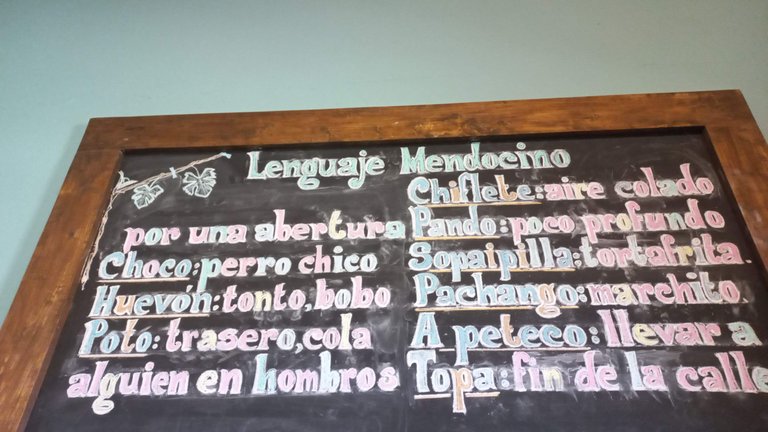 Lenguaje Mendocino
Chiflete: aire colado
por una abertura Pando: poco profundo
Choco: perro chico Sopaipilla: tortafrita.
Huevón: tonto, bobo Pachango: marchito.
Poto: trasero, cola A peteco: llevar a
alguien en hombros Topa: fin de la calle